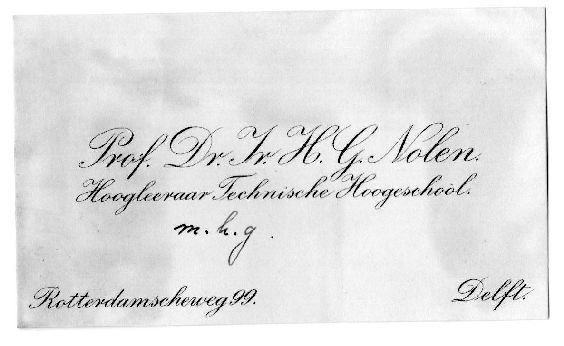 Prof. Dr. Ir H. G. Nolen.
Hoogleeraar Technische Hoogeschool.
m. h. g.
Rotterdamscheweg 99. Delft.